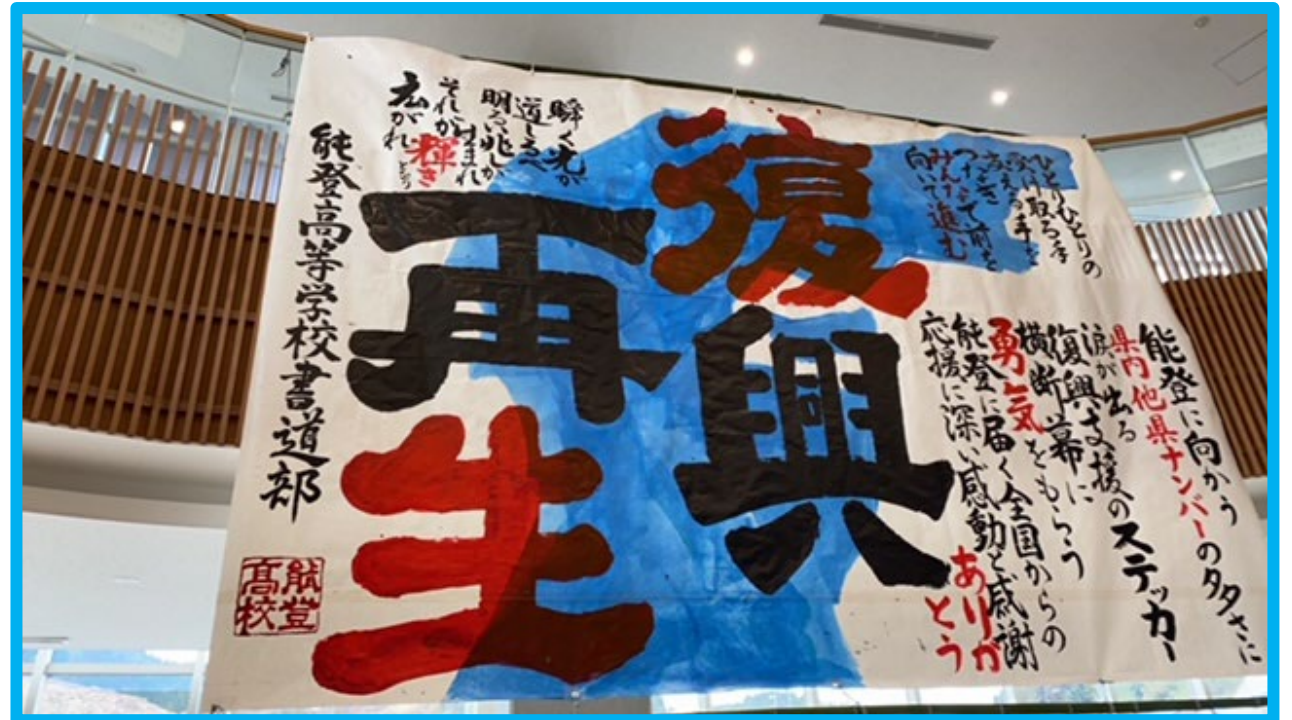 復興
再生
ひとりひとりの
受け取る手
支える手を
つなぎ
つなげて前を
みんな進む
向いて
能登に向かう
県内他県ナンバーの多さに
涙が出る
復興支援のステッカー
横断幕に
勇気をもらう
能登に届く全国からの
応援に深い感動と感謝
ありが
とう
瞬く光が
道しるべ
明るい兆しが
それが輝き
広がれ
能登高等学校書道部
能登
高校